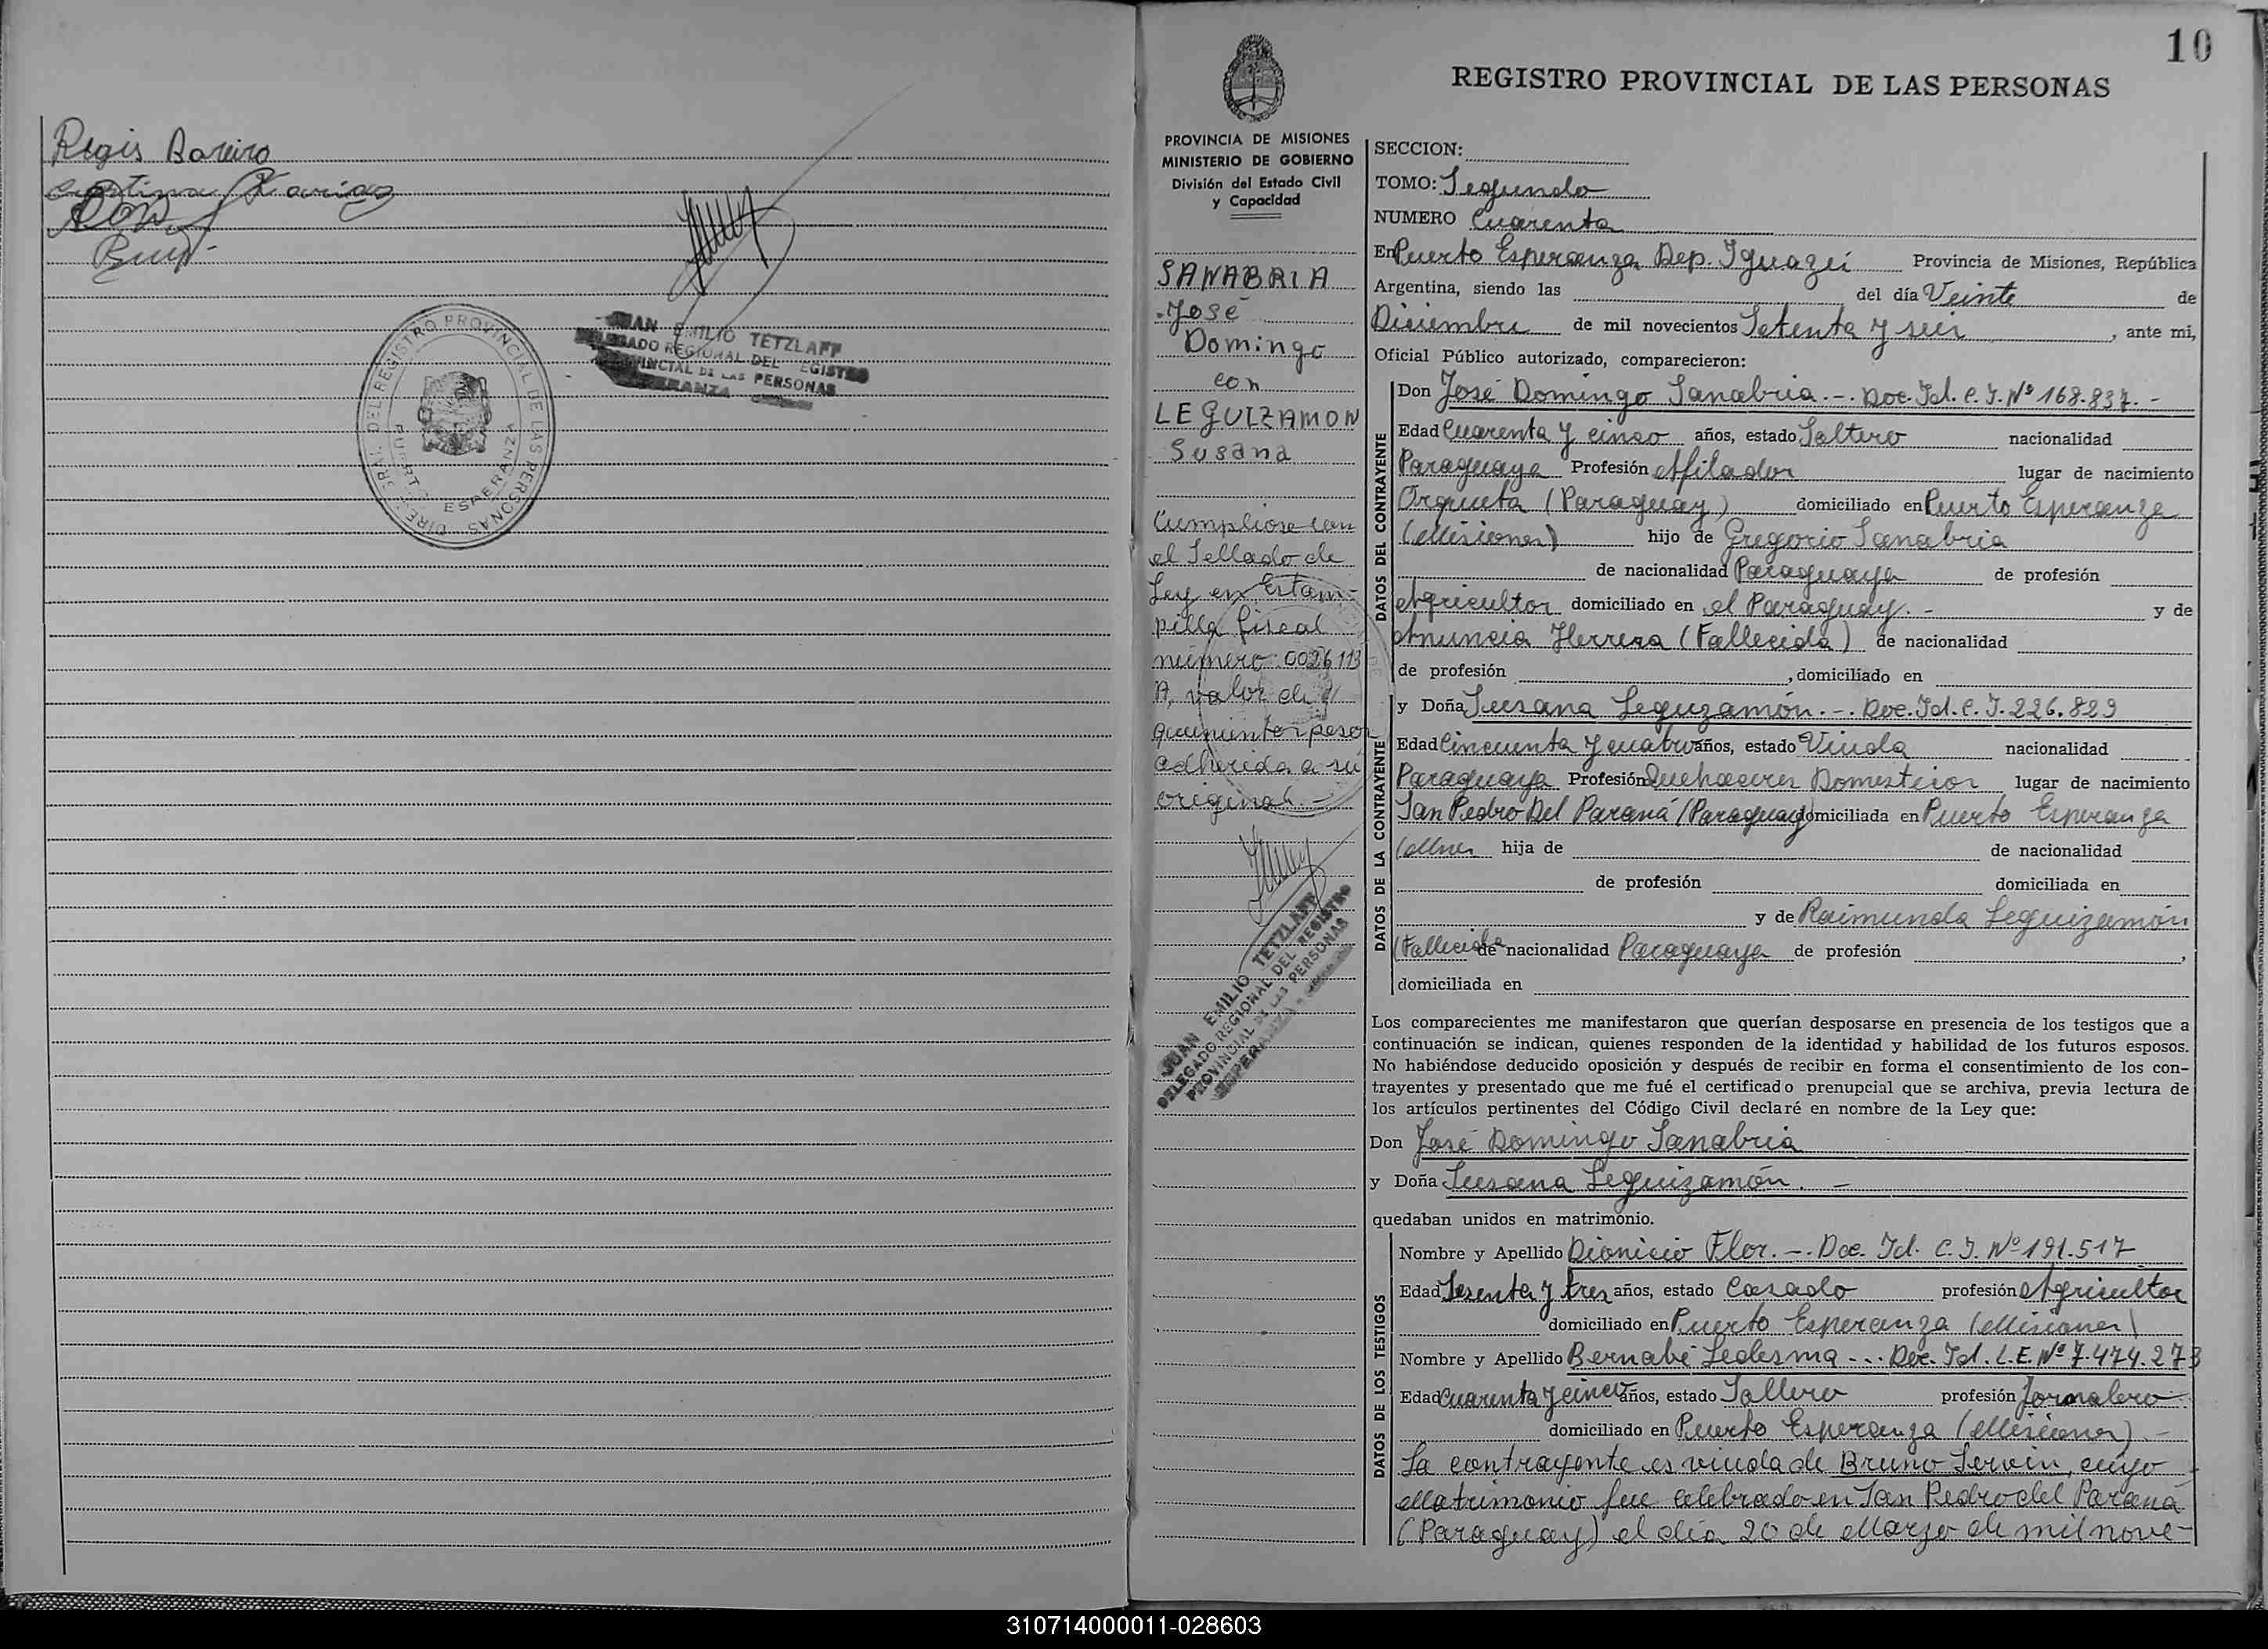 Regis Bareiro
JUAN EMILIO TETZLAFF
DELEGADO REGIONAL DEL REGISTRO
PROVINCIAL DE LAS PERSONAS
ESPERANZA
DIREC. GRAL. DEL REGISTRO PROVINCIAL DE LAS PERSONAS
PUERTO ESPERANZA
10
REGISTRO PROVINCIAL DE LAS PERSONAS
PROVINCIA DE MISIONES
MINISTERIO DE GOBIERNO
División del Estado Civil
y Capacidad
SANABRIA
José
Domingo
con
LEGUIZAMON
Susana
Cumpliose con
el Sellado de
Ley en Estam-
pilla fiscal
número 0026113
A, valor de
quinientos pesos
adherida a su
original.-
JUAN EMILIO TETZLAFF
DELEGADO REGIONAL DEL REGISTRO
PROVINCIAL DE LAS PERSONAS
ESPERANZA
SECCION:
TOMO: Segundo
NUMERO Cuarenta
En Puerto Esperanza Dep. Iguazú Provincia de Misiones, República
Argentina, siendo las del día Veinte de
Diciembre de mil novecientos Setenta y seis, ante mi,
Oficial Público autorizado, comparecieron:
DATOS DEL CONTRAYENTE
Don José Domingo Sanabria.-. Doc. Id. C.I. Nº 168.837.-
Edad Cuarenta y cinco años, estado Soltero nacionalidad
Paraguaya Profesión Afilador lugar de nacimiento
Orqueta (Paraguay) domiciliado en Puerto Esperanza
(Misiones) hijo de Gregorio Sanabria
de nacionalidad Paraguaya de profesión
Agricultor domiciliado en el Paraguay.- y de
Anuncia Herrera (Fallecida) de nacionalidad
de profesión , domiciliado en
DATOS DE LA CONTRAYENTE
y Doña Susana Leguzamón.-. Doc. Id. C.I. 226.829
Edad Cincuenta y cuatro años, estado Viuda nacionalidad
Paraguaya Profesión Quehaceres Domesticos lugar de nacimiento
San Pedro Del Paraná (Paraguay) domiciliada en Puerto Esperanza
(Mnes hija de de nacionalidad
de profesión domiciliada en
y de Raimunda Leguizamón
(Fallecida de nacionalidad Paraguaya de profesión ,
domiciliada en
Los comparecientes me manifestaron que querían desposarse en presencia de los testigos que a
continuación se indican, quienes responden de la identidad y habilidad de los futuros esposos.
No habiéndose deducido oposición y después de recibir en forma el consentimiento de los con-
trayentes y presentado que me fué el certificado prenupcial que se archiva, previa lectura de
los artículos pertinentes del Código Civil declaré en nombre de la Ley que:
Don José Domingo Sanabria
y Doña Susana Leguizamón. -
quedaban unidos en matrimonio.
DATOS DE LOS TESTIGOS
Nombre y Apellido Dionicio Flor.-. Doc. Id. C.I. Nº 191.517
Edad Sesenta y tres años, estado Casado profesión Agricultor
domiciliado en Puerto Esperanza (Misiones)
Nombre y Apellido Bernabé Ledesma -.. Doc. Id. L.E. Nº 7.474.273
Edad Cuarenta y cinco años, estado Soltero profesión Jornalero
domiciliado en Puerto Esperanza (Misiones).-
La contrayente es viuda de Bruno Servin, cuyo
Matrimonio fue celebrado en San Pedro del Paraná
(Paraguay) el día 20 de Marzo de mil nove-
310714000011-028603